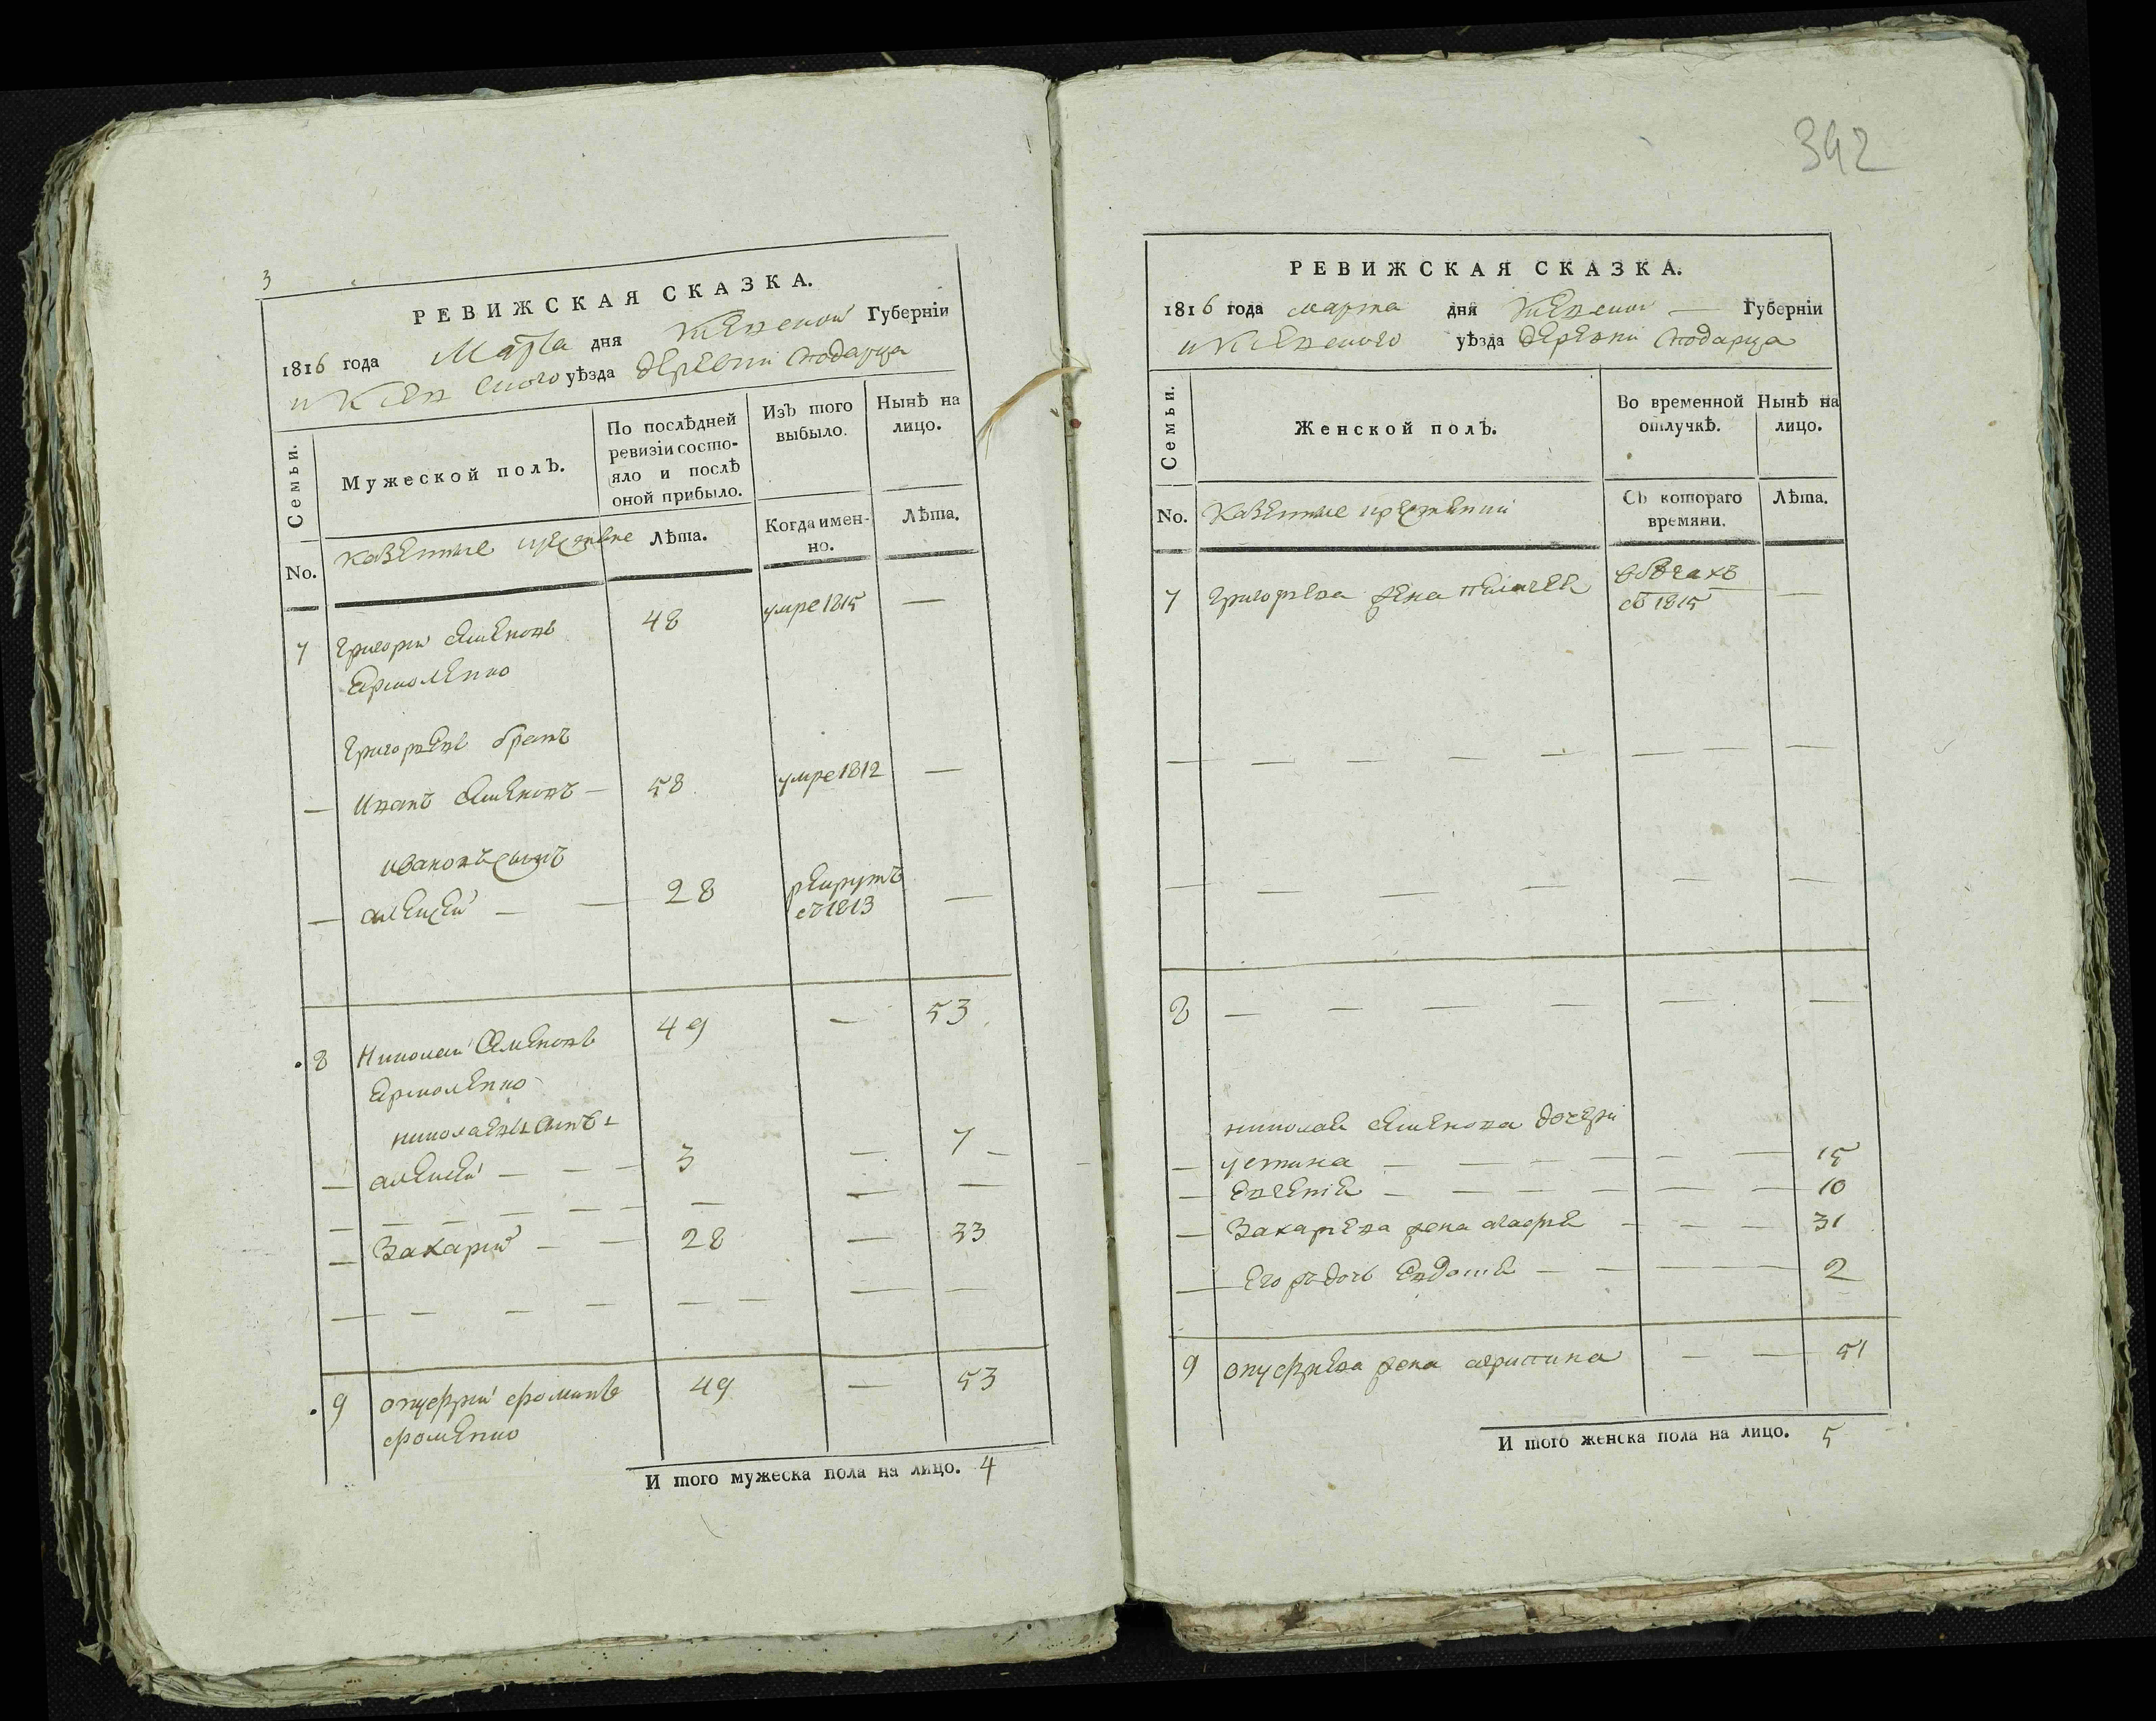 3
РЕВИЖСКАЯ СКАЗКА.
1816 года Марта дня Киевской Губернїи
и Киевского уѣзда деревни Глодарца
Семьи.
Мужеской полъ.
По послѣдней
ревизїи состо-
яло и послѣ
оной прибыло.
Изъ того
выбыло.
Нынѣ на
лицо.
No.
казенные
Лѣта.
Когда имен-
но.
Лѣта.
7 григорий Семеновъ 48 умре 1815 —
Ермоленко
григорьевъ братъ
— Иванъ Семеновъ — 58 умре 1812 —
ивановъ сынъ
— алексей — — 28 рекрутъ —
съ 1813
8 Николай Семеновъ 49 — 53
Ермоленко
николаевы сынъ
— алексей — — — 3 — 7 —
— — — — — — — — —
— Захарий — — 28 — 33
— — — — — — — —
9 онуфрий фоминъ 49 — 53
фоменко
И того мужеска пола на лицо. 4
342
РЕВИЖСКАЯ СКАЗКА.
1816 года марта дня Киевской — Губернїи
и Киевского уѣзда деревни
Семьи.
Женской полъ.
Во временной
отлучкѣ.
Нынѣ на
лицо.
No.
Казенные
Съ котораго
времяни.
Лѣта.
7 григорьева жена пелагея —
съ 1815
— — — — — — — —
— — — — — —
8 — — — — — —
николая Семенова дочери
— устина — — — — — — 15
— Евгения — — — — — — 10
— Захарьева жена агафия — — — 31
— Его ж дочь Евдокия — — — — 2
9 онуфриева жена агрипина — — 51
И того женска пола на лицо. 5